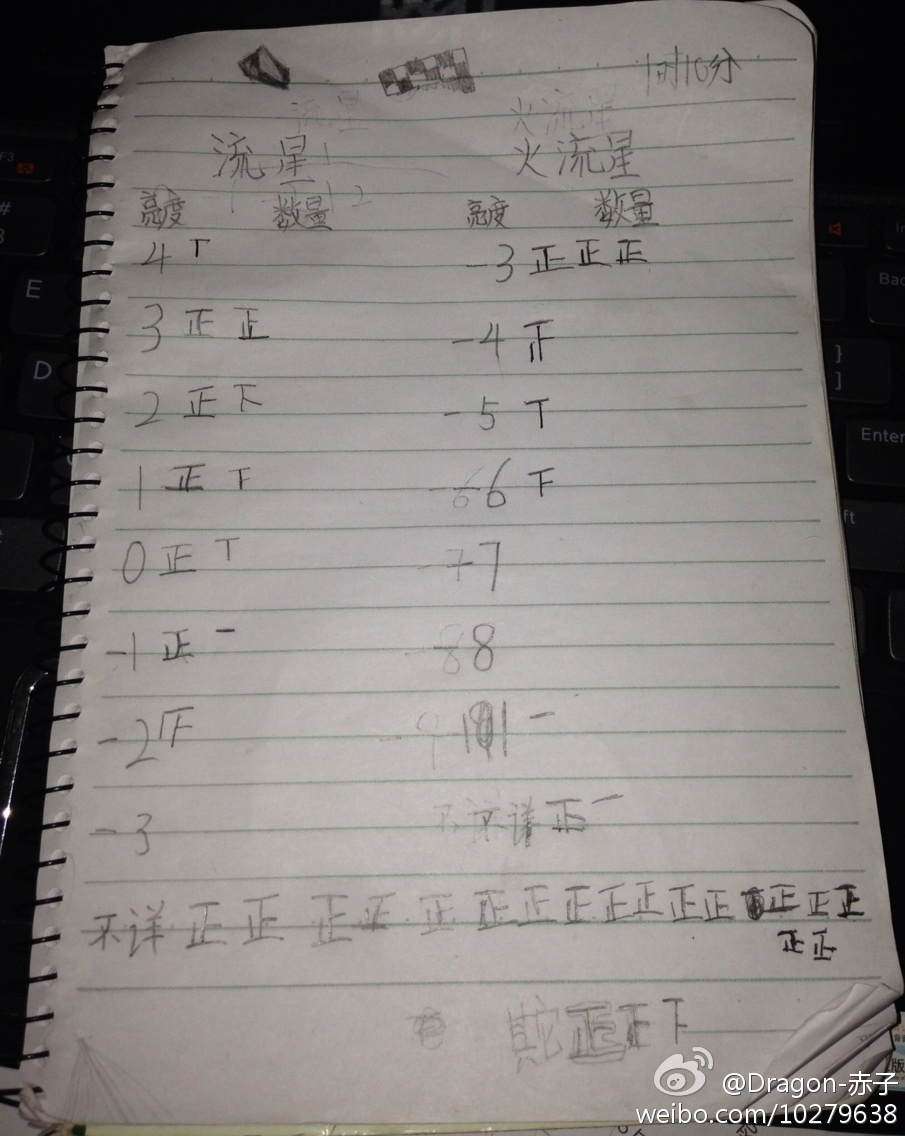 1时10分
流星 火流星
亮度 数量 亮度 数量
4 T -3 正正正
3 正正 -4 正
2 正下 -5 T
1 正下 -6 下
0 正T -7
-1 正一 -8
-2 下 一
-3 不详 正一
不详 正正正正正正正正正正正正正正正
正正
正正下
@Dragon-赤子
weibo.com/10279638
E
D
Enter